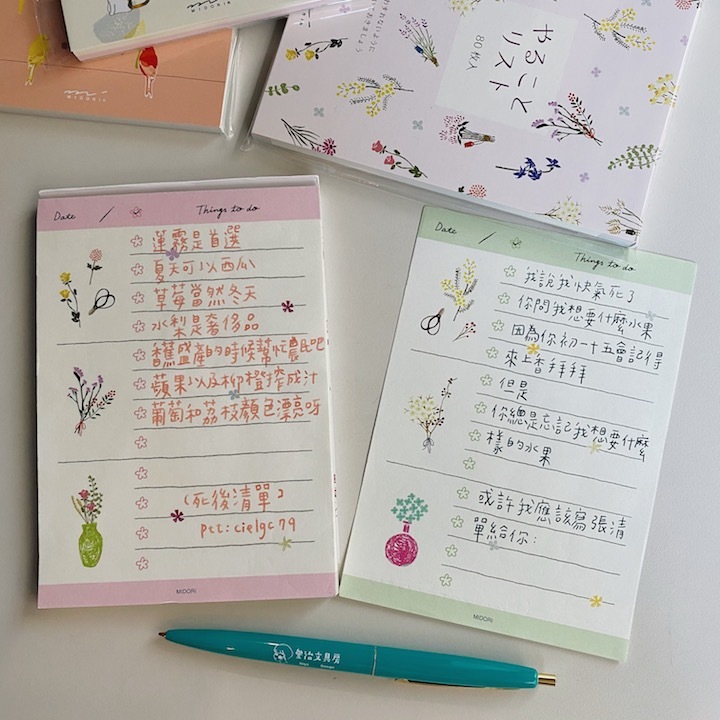 MIDORI
MIDORI
やること
リスト
80枚入
Date / Things to do
蓮霧是首選
夏天可以西瓜
草莓當然冬天
水果是奢侈品
香蕉盛產的時候幫忙農民吧
蘋果以及柳橙搾成汁
葡萄和荔枝顏色漂亮呀
(死後清單】
ptt: cielgc79
MIDORI
Date / Things to do
我說我快氣死了
你問我想要什麼水果
因為你初一十五會記得
來上香拜拜
但是
你總是忘記我想要什麼
樣的水果
或許我應該寫張清
單給你:
MIDORI
治文具房